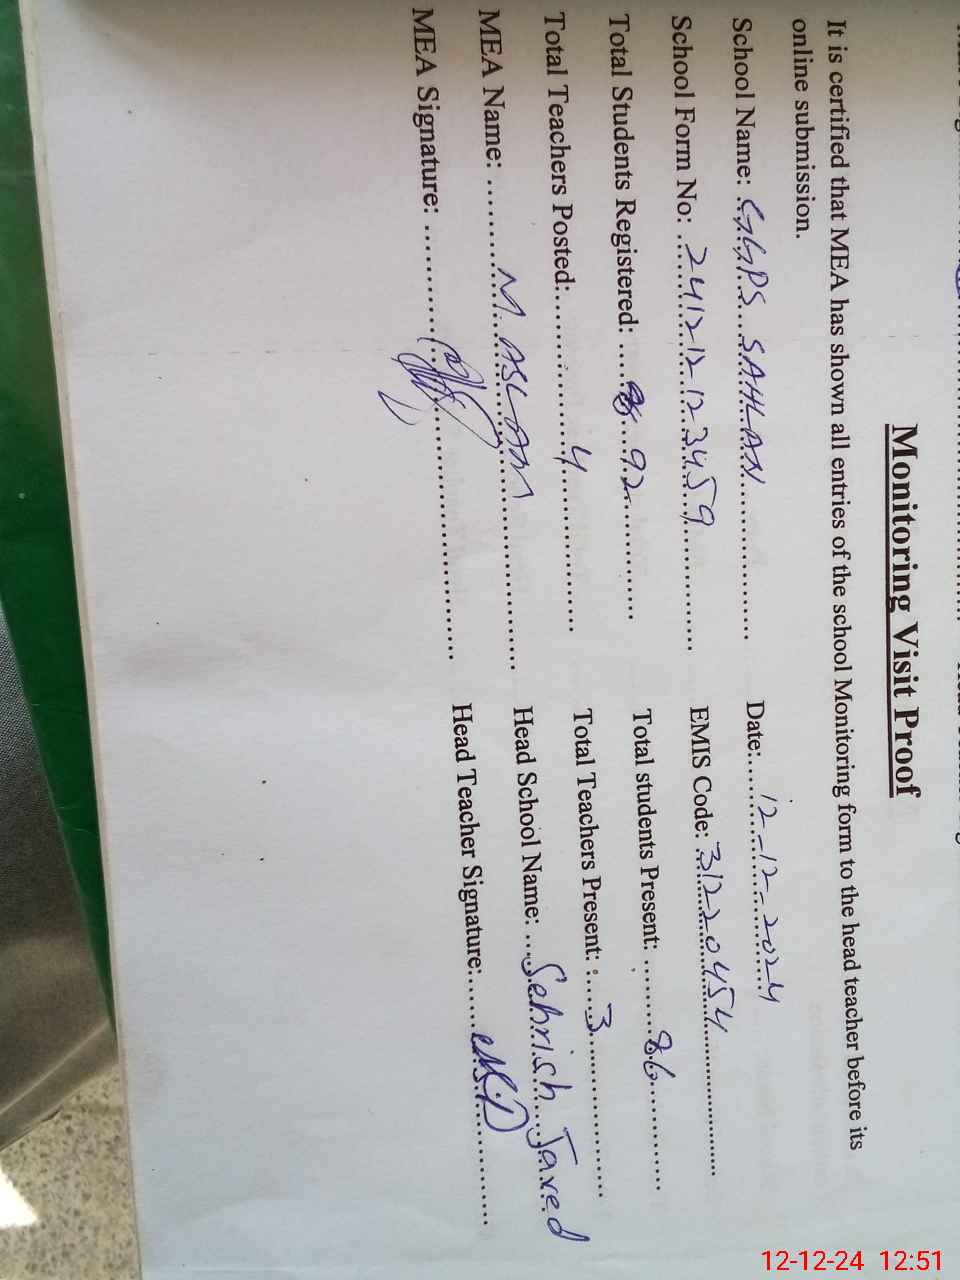 Monitoring Visit Proof
It is certified that MEA has shown all entries of the school Monitoring form to the head teacher before its
online submission.
School Name: GGPS SAHLAN Date: 12-12-2024
School Form No: 241212123459 EMIS Code: 31220454
Total Students Registered: 92 Total students Present: 86
Total Teachers Posted: 4 Total Teachers Present: 3
MEA Name: M. ASLAM Head School Name: Sehrish Javed
MEA Signature: Head Teacher Signature:
12-12-24 12:51